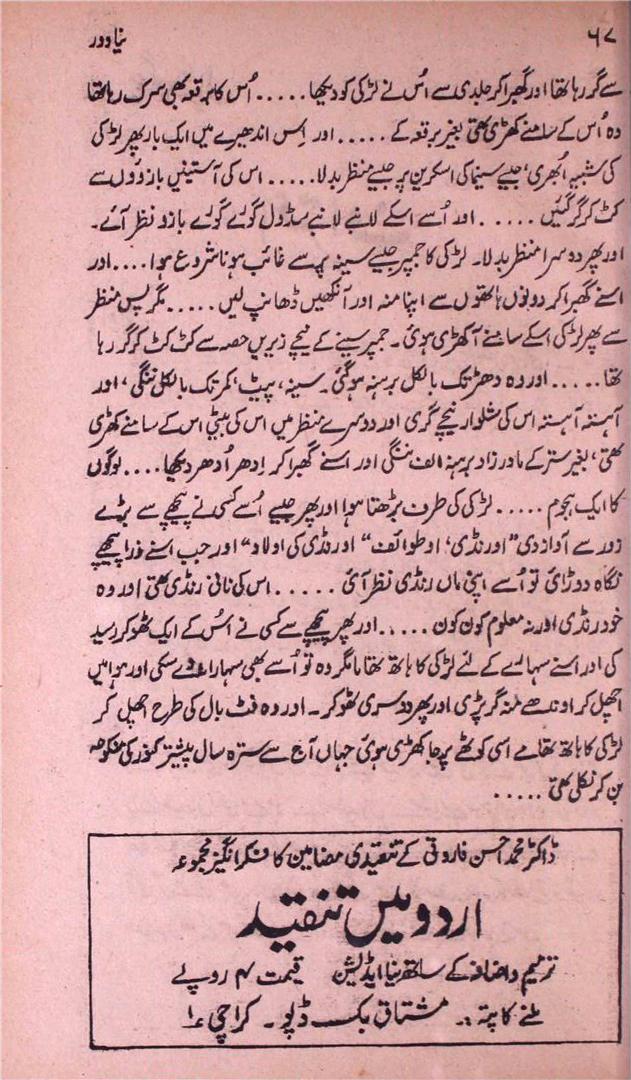 ۶۷ نیا دور
سے گر رہا تھا اور گھبرا کر جلدی سے اُس نے لڑکی کو دیکھا ..... اُس کا برقعہ بھی سرک رہا تھا
وہ اُس کے سامنے کھڑی تھی بغیر برقعہ کے ..... اور اِس اندھیرے میں ایک بار پھر لڑکی
کی شبیہ اُبھری، جیسے سنیما کی اسکرین پر جیسے منظر بدلا ..... اس کی آستینیں بازوؤں سے
کٹ کر گر گئیں ..... اور اُسے اسکے لانبے لانبے سڈول گورے گورے بازو نظر آئے۔
اور پھر دوسرا منظر بدلا۔ لڑکی کا جمپر جیسے سینہ پر سے غائب ہونا شروع ہوا .... اور
اسنے گھبرا کر دونوں ہاتھوں سے اپنا منہ اور آنکھیں ڈھانپ لیں ..... مگر پس منظر
سے پھر لڑکی اسکے سامنے آکھڑی ہوئی۔ جمپر سینے کے نیچے زیریں حصہ سے کٹ کٹ کر گر رہا
تھا ..... اور وہ دھڑ تک بالکل برہنہ ہوگئی۔ سینہ، پیٹ، کمر تک بالکل ننگی، اور
آہستہ آہستہ اس کی شلوار نیچے گری اور دوسرے منظر میں اس کی بیٹی اس کے سامنے کھڑی
تھی، بغیر ستر کے مادر زاد برہنہ الف ننگی اور اسنے گھبرا کر اِدھر اُدھر دیکھا .... لوگوں
کا ایک ہجوم ..... لڑکی کی طرف بڑھتا ہوا اور پھر جیسے اُسے کسی نے پیچھے سے بڑے
زور سے آواز دی "او رنڈی، او طوائف" او رنڈی کی اولاد" اور جب اسنے ذرا پیچھے
نگاہ دوڑائی تو اُسے اپنی ماں رنڈی نظر آئی ..... اس کی نانی رنڈی تھی اور وہ
خود رنڈی اور نہ معلوم کون کون ..... اور پھر پیچھے سے کسی نے اُس کے ایک ٹھوکر رسید
کی اور اسنے سہارے کے لئے لڑکی کا ہاتھ تھاما مگر وہ تو اُسے بھی سہارا نہ دے سکی اور ہوا میں
اچھل کر اوندھے منہ گر پڑی اور پھر دوسری ٹھوکر۔ اور وہ فٹ بال کی طرح اچھل کر
لڑکی کا ہاتھ تھامے اسی کوٹھے پر جا کھڑی ہوئی جہاں آج سے سترہ سال پیشتر کی منکوحہ
بن کر نکلی تھی .....
ڈاکٹر محمد احسن فاروقی کے تنقیدی مضامین کا فکر انگیز مجموعہ
اردو میں تنقید
ترمیم و اضافہ کے ساتھ نیا ایڈیشن قیمت ۴ روپے
ملنے کا پتہ :۔ مشتاق بک ڈپو۔ کراچی ۱